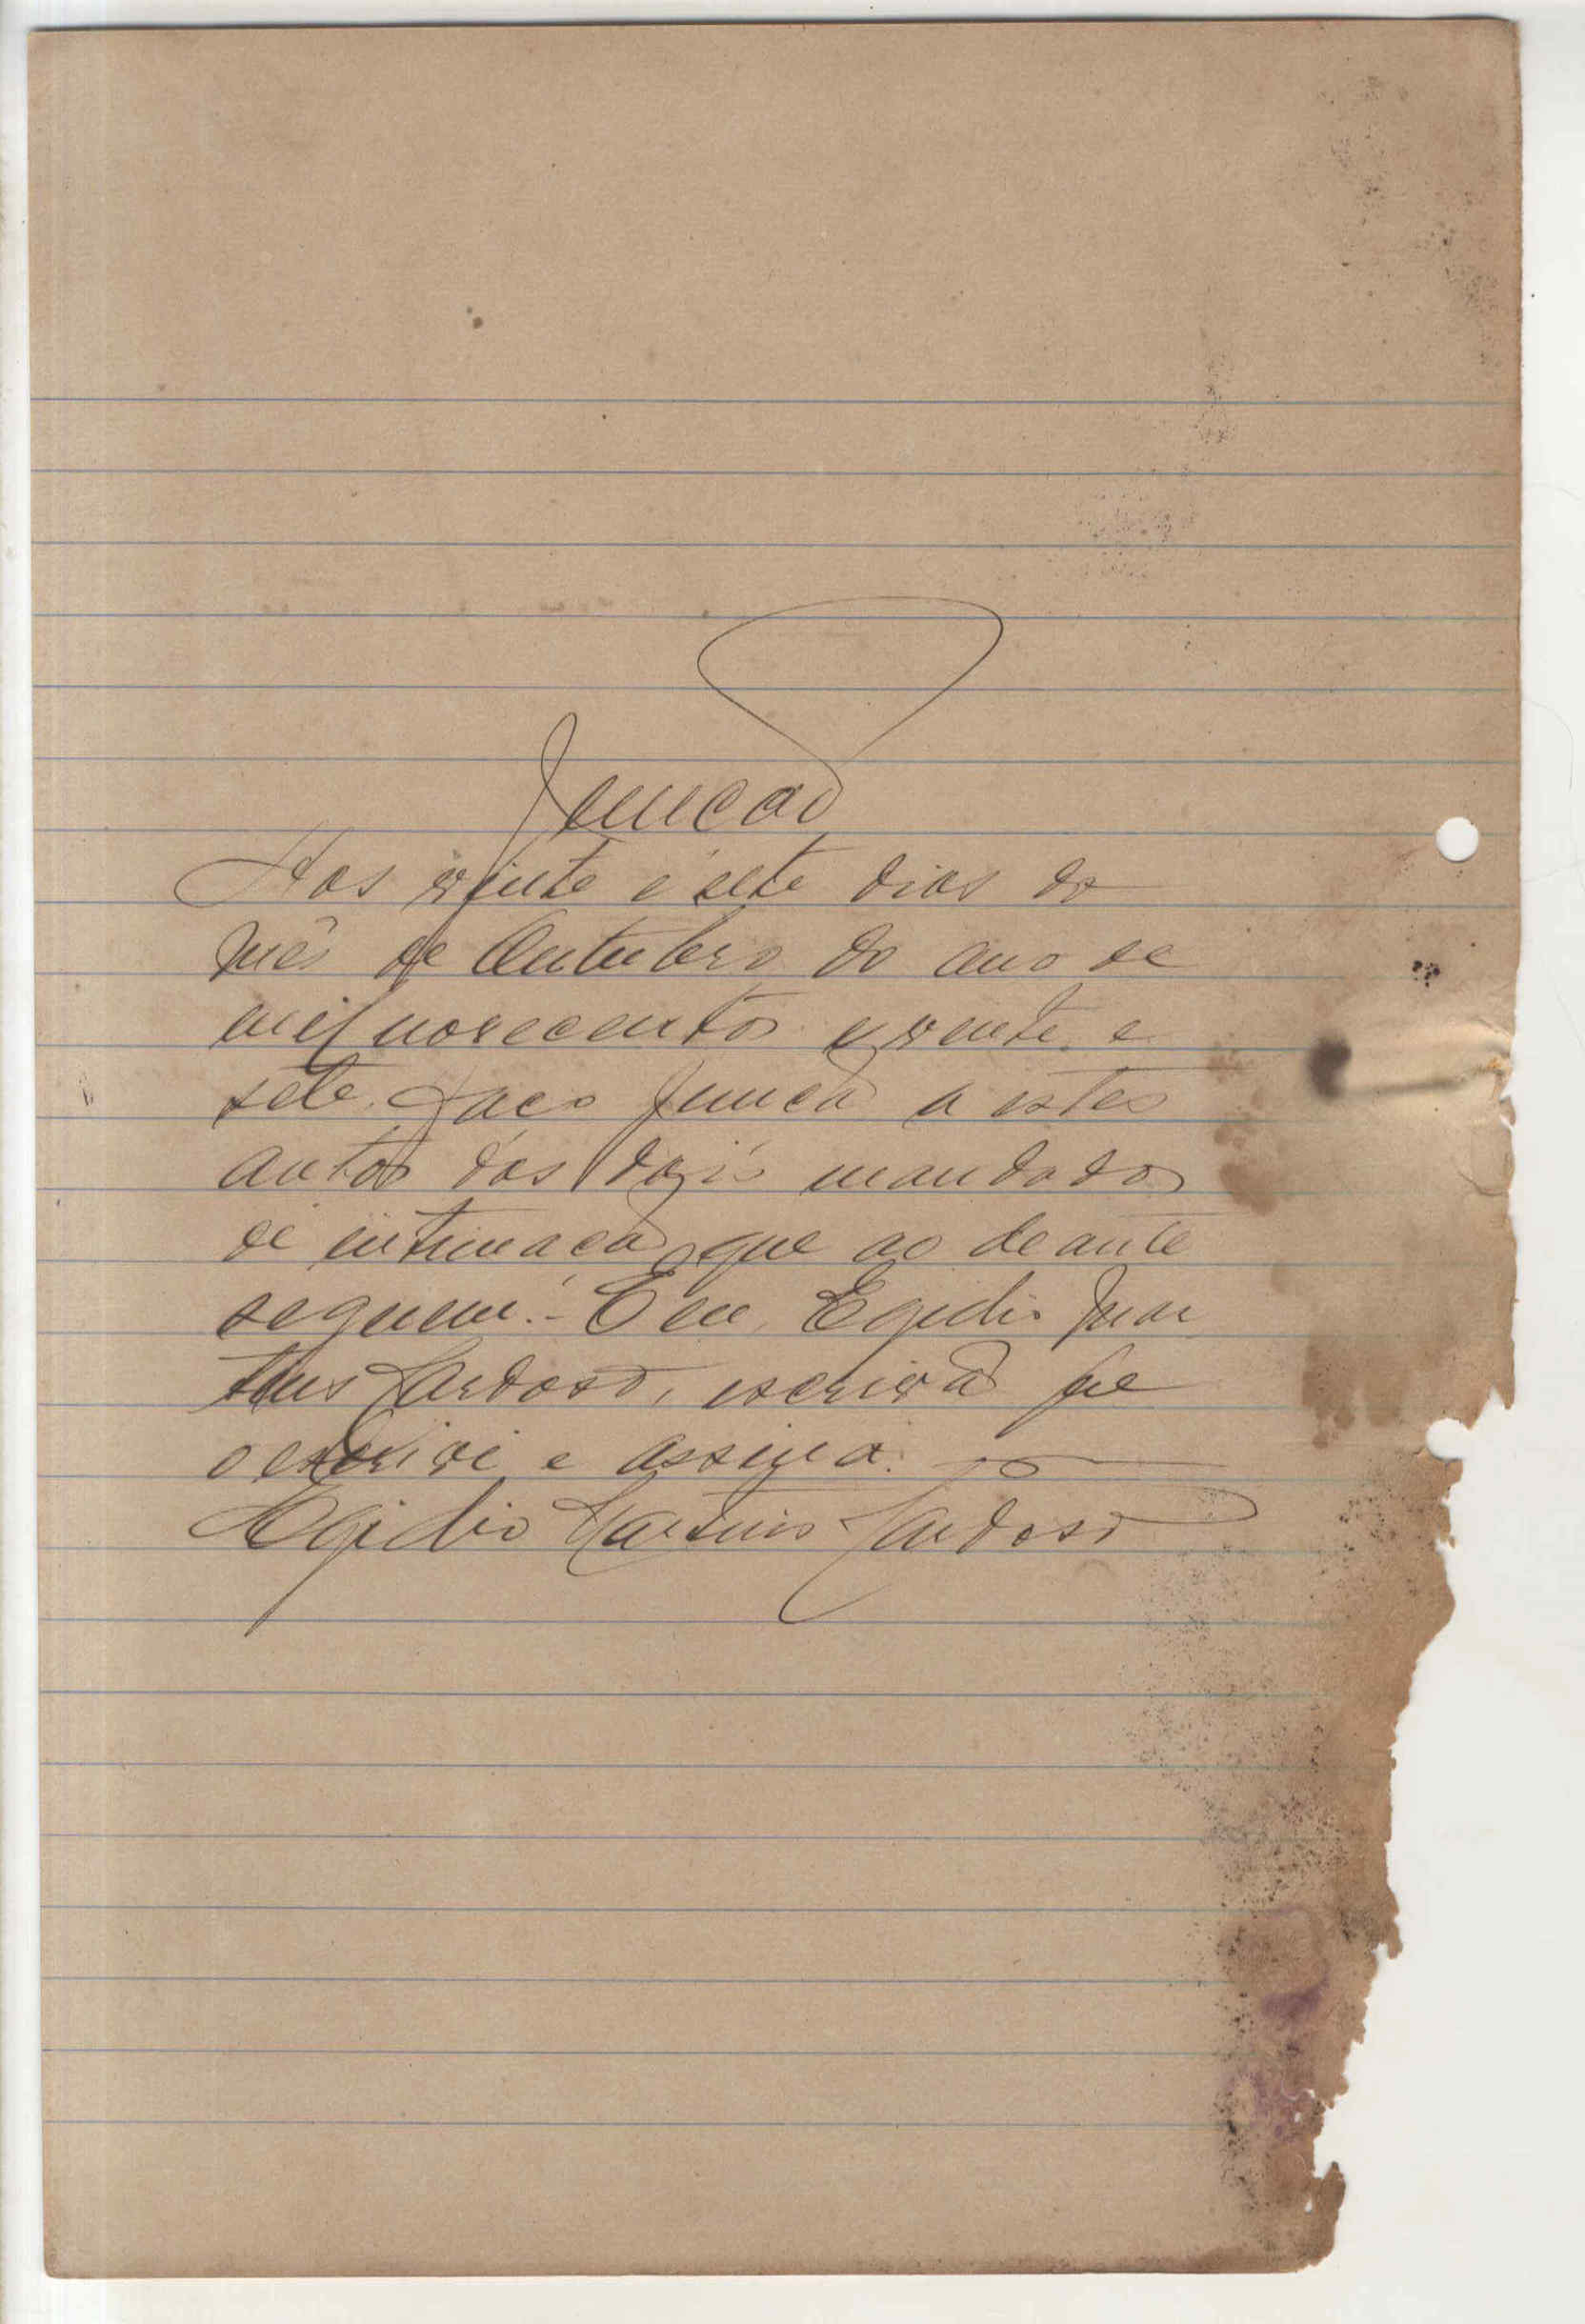 Juncão
Aos vinte e sete dias do
mês de Outubro do ano de
mil novecentos e vinte e
sete. Faço juncão a estes
autos dos dois mandados
de intimacão que ao deante
seguem.- E eu, Egidio Mar
tins Cardoso, escrivão que
o escrivi e assino.
Egidio Martins Cardoso